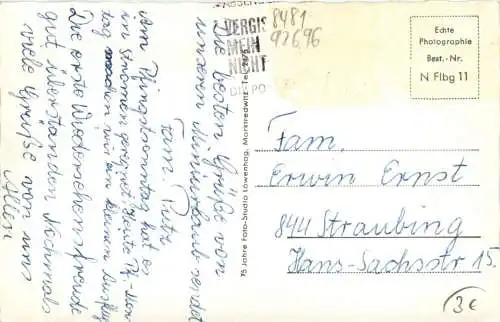 Die besten Grüße von
unserem Miniurlaub sendet
Fam. Putz
Am Pfingstsonntag hat es
in Strömen geregnet, heute Pf.-Mon-
tag machen wir einen kleinen Ausflug
Die erste Wiedersehensfreude
gut überstanden Nochmals
viele Grüße von uns
Allen
VERGISS
MEIN
NICHT
DIE PO
8481
926,96
Echte
Photographie
Best.-Nr.
N Flbg 11
75 Jahre Foto-Studio Löwenhag, Marktredwitz, Tel.
Fam.
Erwin Ernst
844 Straubing
Hans-Sachsstr 15.
3€